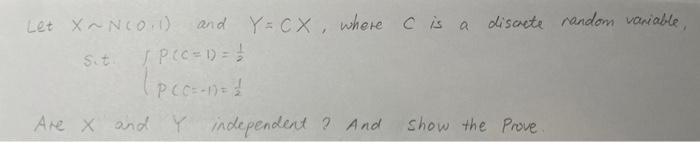 Let X~N(0,1) and Y=CX, where C is a discrete random variable,
s.t. { P(C=1)=1/2
P(C=-1)=1/2
Are X and Y independent? And show the Prove.